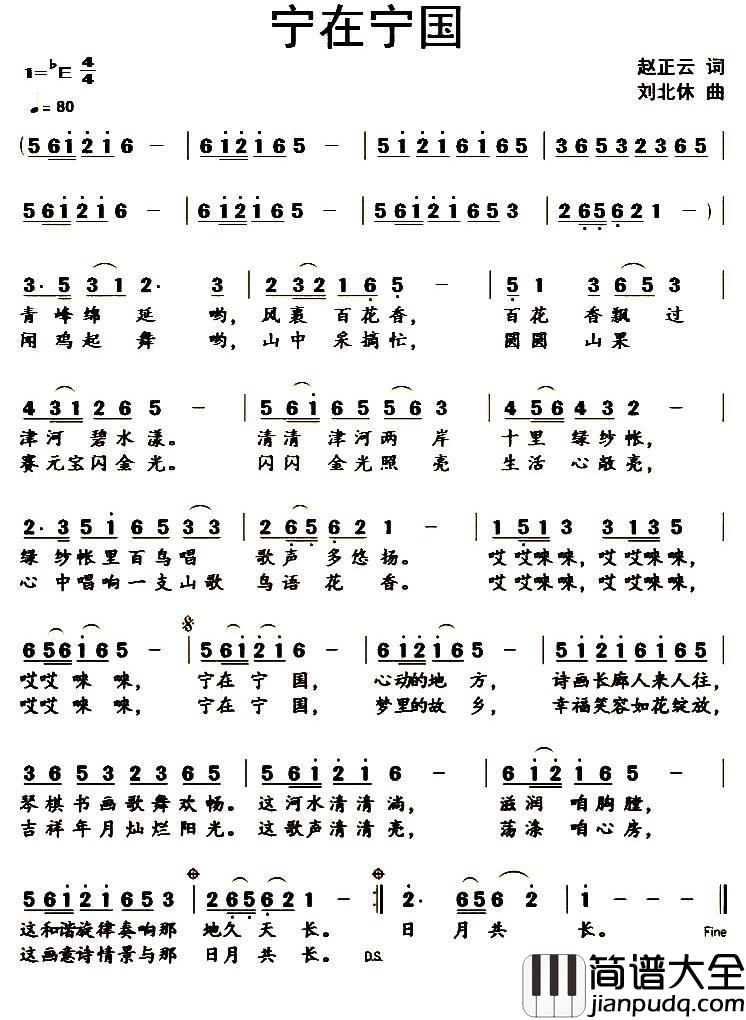 宁在宁国
1=♭E 4/4
赵正云 词
♩= 80
刘北休 曲
(5 6 1 2 1 6 - | 6 1 2 1 6 5 - | 5 1 2 1 6 1 6 5 | 3 6 5 3 2 3 6 5 |
5 6 1 2 1 6 - | 6 1 2 1 6 5 - | 5 6 1 2 1 6 5 3 | 2 6 5 6 2 1 - ) |
3· 5 3 1 2· 3 | 2 3 2 1 6 5 - | 5 1 3 6 5 3 |
青峰绵延哟,风裹百花香,百花香飘过
闻鸡起舞哟,山中采摘忙,圆圆山果
4 3 1 2 6 5 - | 5 6 1 6 5 5 6 3 | 4 5 6 4 3 2 - |
津河碧水漾。清清津河两岸十里绿纱帐,
赛元宝闪金光。闪闪金光照亮生活心敞亮,
2· 3 5 1 6 5 3 3 | 2 6 5 6 2 1 - | 1 5 1 3 3 5 1 3 |
绿纱帐里百鸟唱歌声多悠扬。哎哎唻唻,哎哎唻唻,
心中唱响一支山歌鸟语花香。哎哎唻唻,哎哎唻唻,
6 5 6 1 6 5 - | 5 6 1 2 1 6 - | 6 1 2 1 6 5 - | 5 1 2 1 6 1 6 5 |
哎哎唻唻,宁在宁国,心动的地方,诗画长廊人来人往,
哎哎唻唻,宁在宁国,梦里的故乡,幸福笑容如花绽放,
3 6 5 3 2 3 6 5 | 5 6 1 2 1 6 - | 6 1 2 1 6 5 - |
琴棋书画歌舞欢畅。这河水清清淌,滋润咱胸膛,
吉祥年月灿烂阳光。这歌声清清亮,荡涤咱心房,
5 6 1 2 1 6 5 3 | 2 6 5 6 2 1 - :| 2· 6 5 6 2 | 1 - - - |
这和谐旋律奏响那地久天长。日月共长。 Fine
这画意诗情景与那日月共长。 D.S.
简谱大全
jianpudq.com